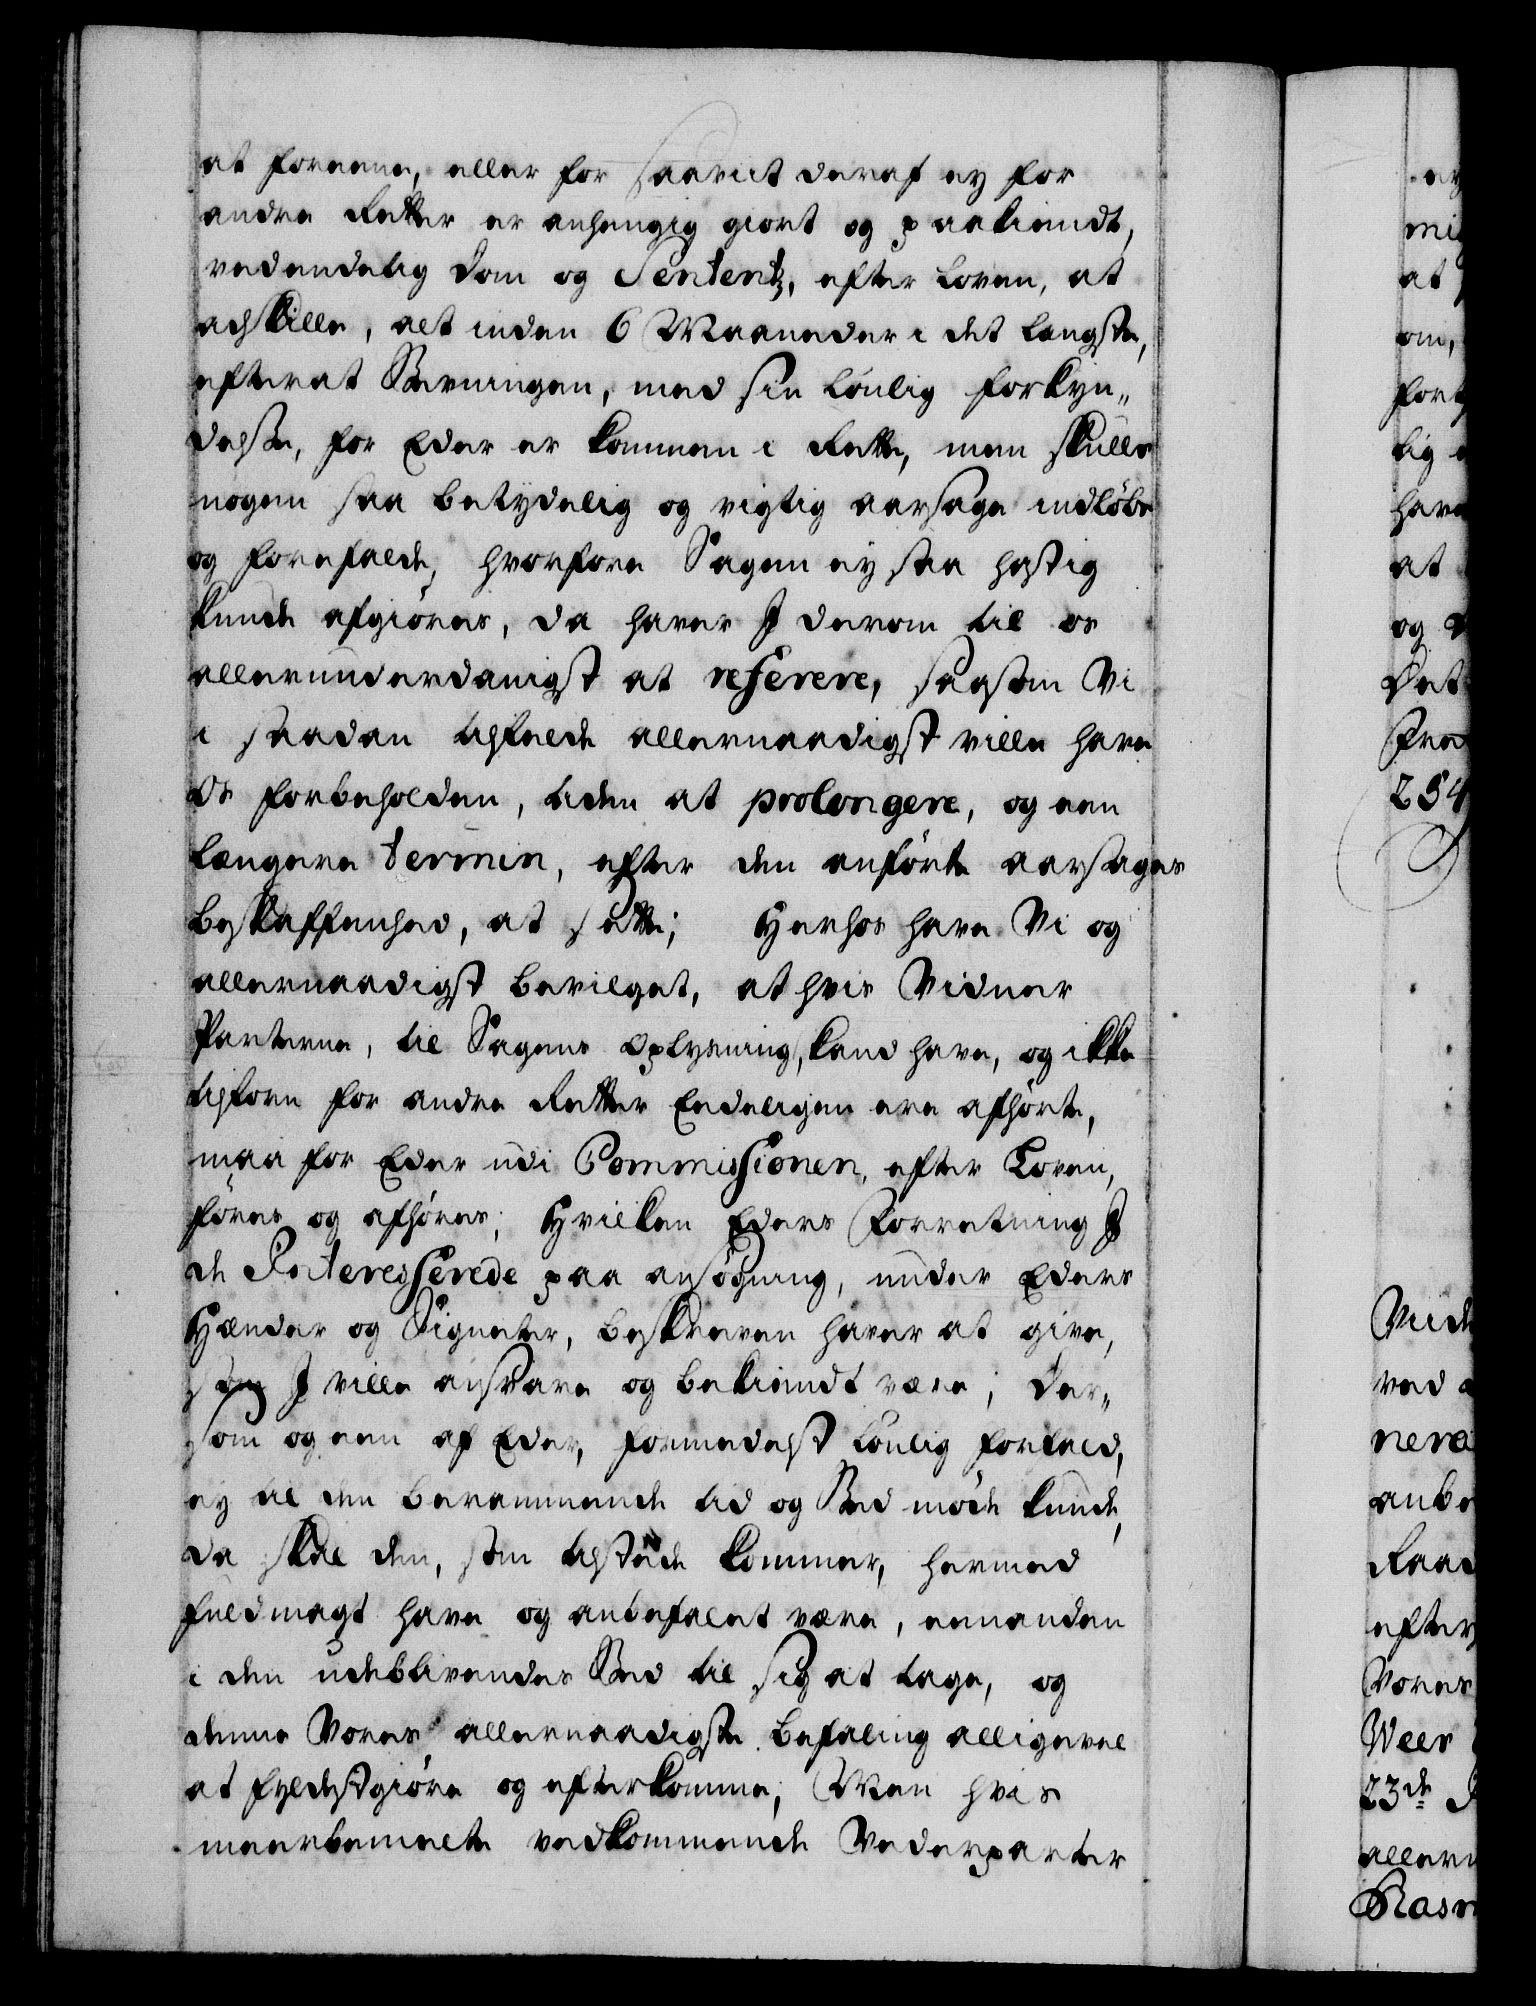 at foreene, eller for saaviit deraf ey for
andre Retter er anhengig giort og paakiendt,
ved endelig Dom og Sententz, efter Loven, at
adskille, alt inden 6 Maaneder i det længste,
efterat Stevningen, med sin lovlig forkyn„
delse, for Eder er kommen i Rette, men skulle
nogen saa betydelig og vigtig aarsage indløbe
og forefalde, hvorfore Sagen ey saa hastig
kunde afgiøres, da haver I derom til os
allerunderdanigst at referere, saasom Vi
i saadan tilfælde allernaadigst ville have
Os forbeholden, tiden at prolongere, og een
længere termin, efter den anførte aarsages
beskaffenhed, at sætte; Herhos have Vi og
allernaadigst bevilget, at hvis Vidner
Parterne, til Sagens Oplysning, kand have, og ikke
tilforn for andre Retter Endeligen ere afhørte,
maa for Eder udi Commissionen, efter Loven,
føres og afhøres; Hvilken Eders Forretning I
de Interesserede paa ansøgning, under Eders
Hænder og Signeter, beskreven haver at give,
som I ville ansvare og bekiendt være; Der„
som og een af Eder, formedelst Lovlig forfald,
ey til den berammende tid og Sted møde kunde,
da skal den, som tilstede kommer, hermed
fuldmagt have og anbefalet være, een anden
i den udeblivendes Sted til sig at tage, og
denne Vores allernaadigste befaling alligevel
at fyldestgiøre og efterkomme; Men hvis
meerbemelte vedkommende Vederparter
ey
mig
at
om,
fort
lig
have
at
og
Det
Fre
254
Viide
ved
nera
anbe
Raad
efter
Vores
Weer
23de
allern
Rasm